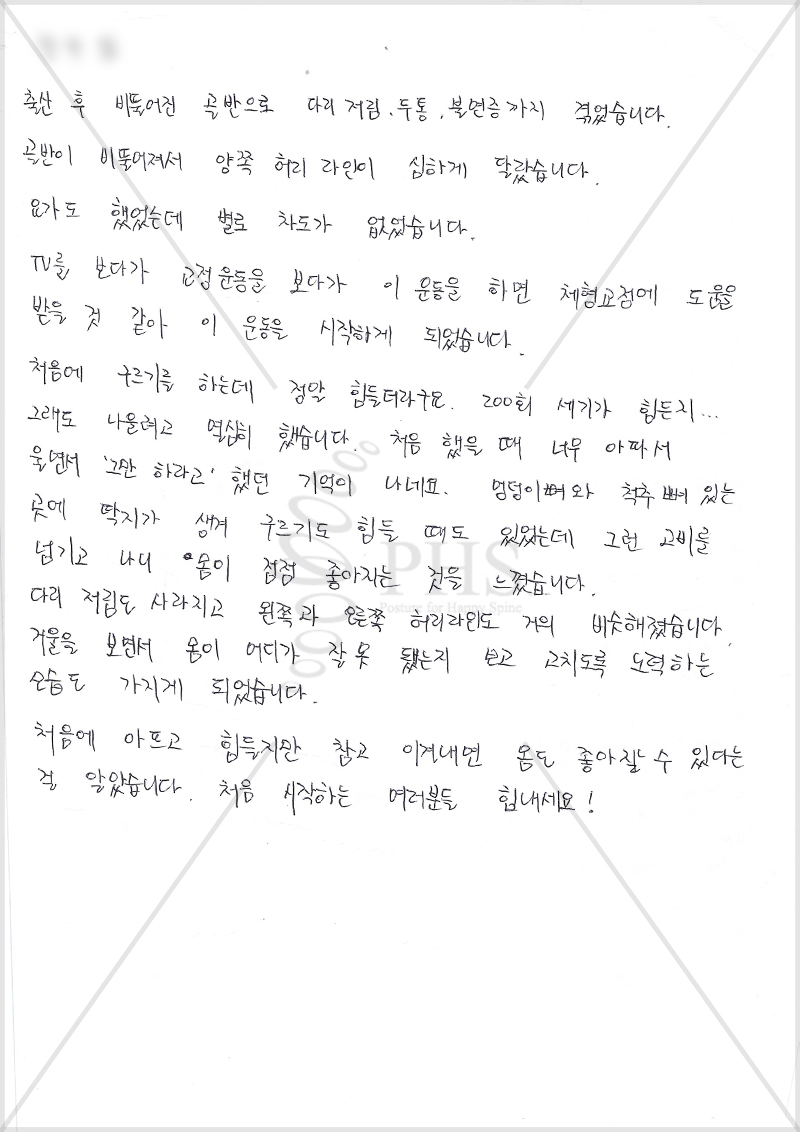 출산 후 비뚫어진 골반으로 다리 저림, 두통, 불면증까지 겪었습니다.
골반이 비뚫어져서 양쪽 허리 라인이 심하게 달랐습니다.
요가도 했었는데 별로 차도가 없었습니다.
TV를 보다가 교정운동을 보다가 이 운동을 하면 체형교정에 도움을
받을 것 같아 이 운동을 시작하게 되었습니다.
처음에 구르기를 하는데 정말 힘들더라구요. 200회 세기가 힘든지...
그래도 나을려고 열심히 했습니다. 처음 했을 때 너무 아파서
울면서 '그만 하라고' 했던 기억이 나네요. 엉덩이뼈와 척추 뼈 있는
곳에 딱지가 생겨 구르기도 힘들 때도 있었는데 그런 고비를
넘기고 나니 몸이 점점 좋아지는 것을 느꼈습니다.
PHS
Posture for Happy Spine
다리 저림도 사라지고 왼쪽과 오른쪽 허리라인도 거의 비슷해졌습니다.
거울을 보면서 몸이 어디가 잘못 됐는지 보고 고치도록 노력하는
모습도 가지게 되었습니다.
처음에 아프고 힘들지만 참고 이겨내면 몸도 좋아질 수 있다는
걸 알았습니다. 처음 시작하는 여러분들 힘내세요!